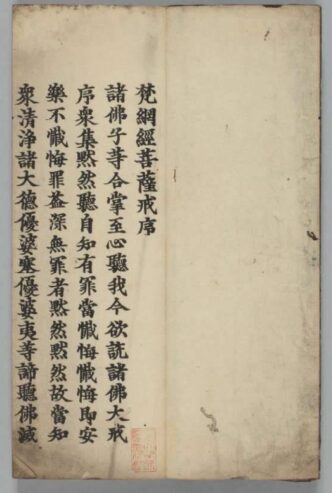 梵網經菩薩戒序
諸佛子等合掌至心聽我今欲說諸佛大戒
序衆集默然聽自知有罪當懺悔懺悔即安
樂不懺悔罪益深無罪者默然默然故當知
衆清淨諸大德優婆塞優婆夷等諦聽佛滅